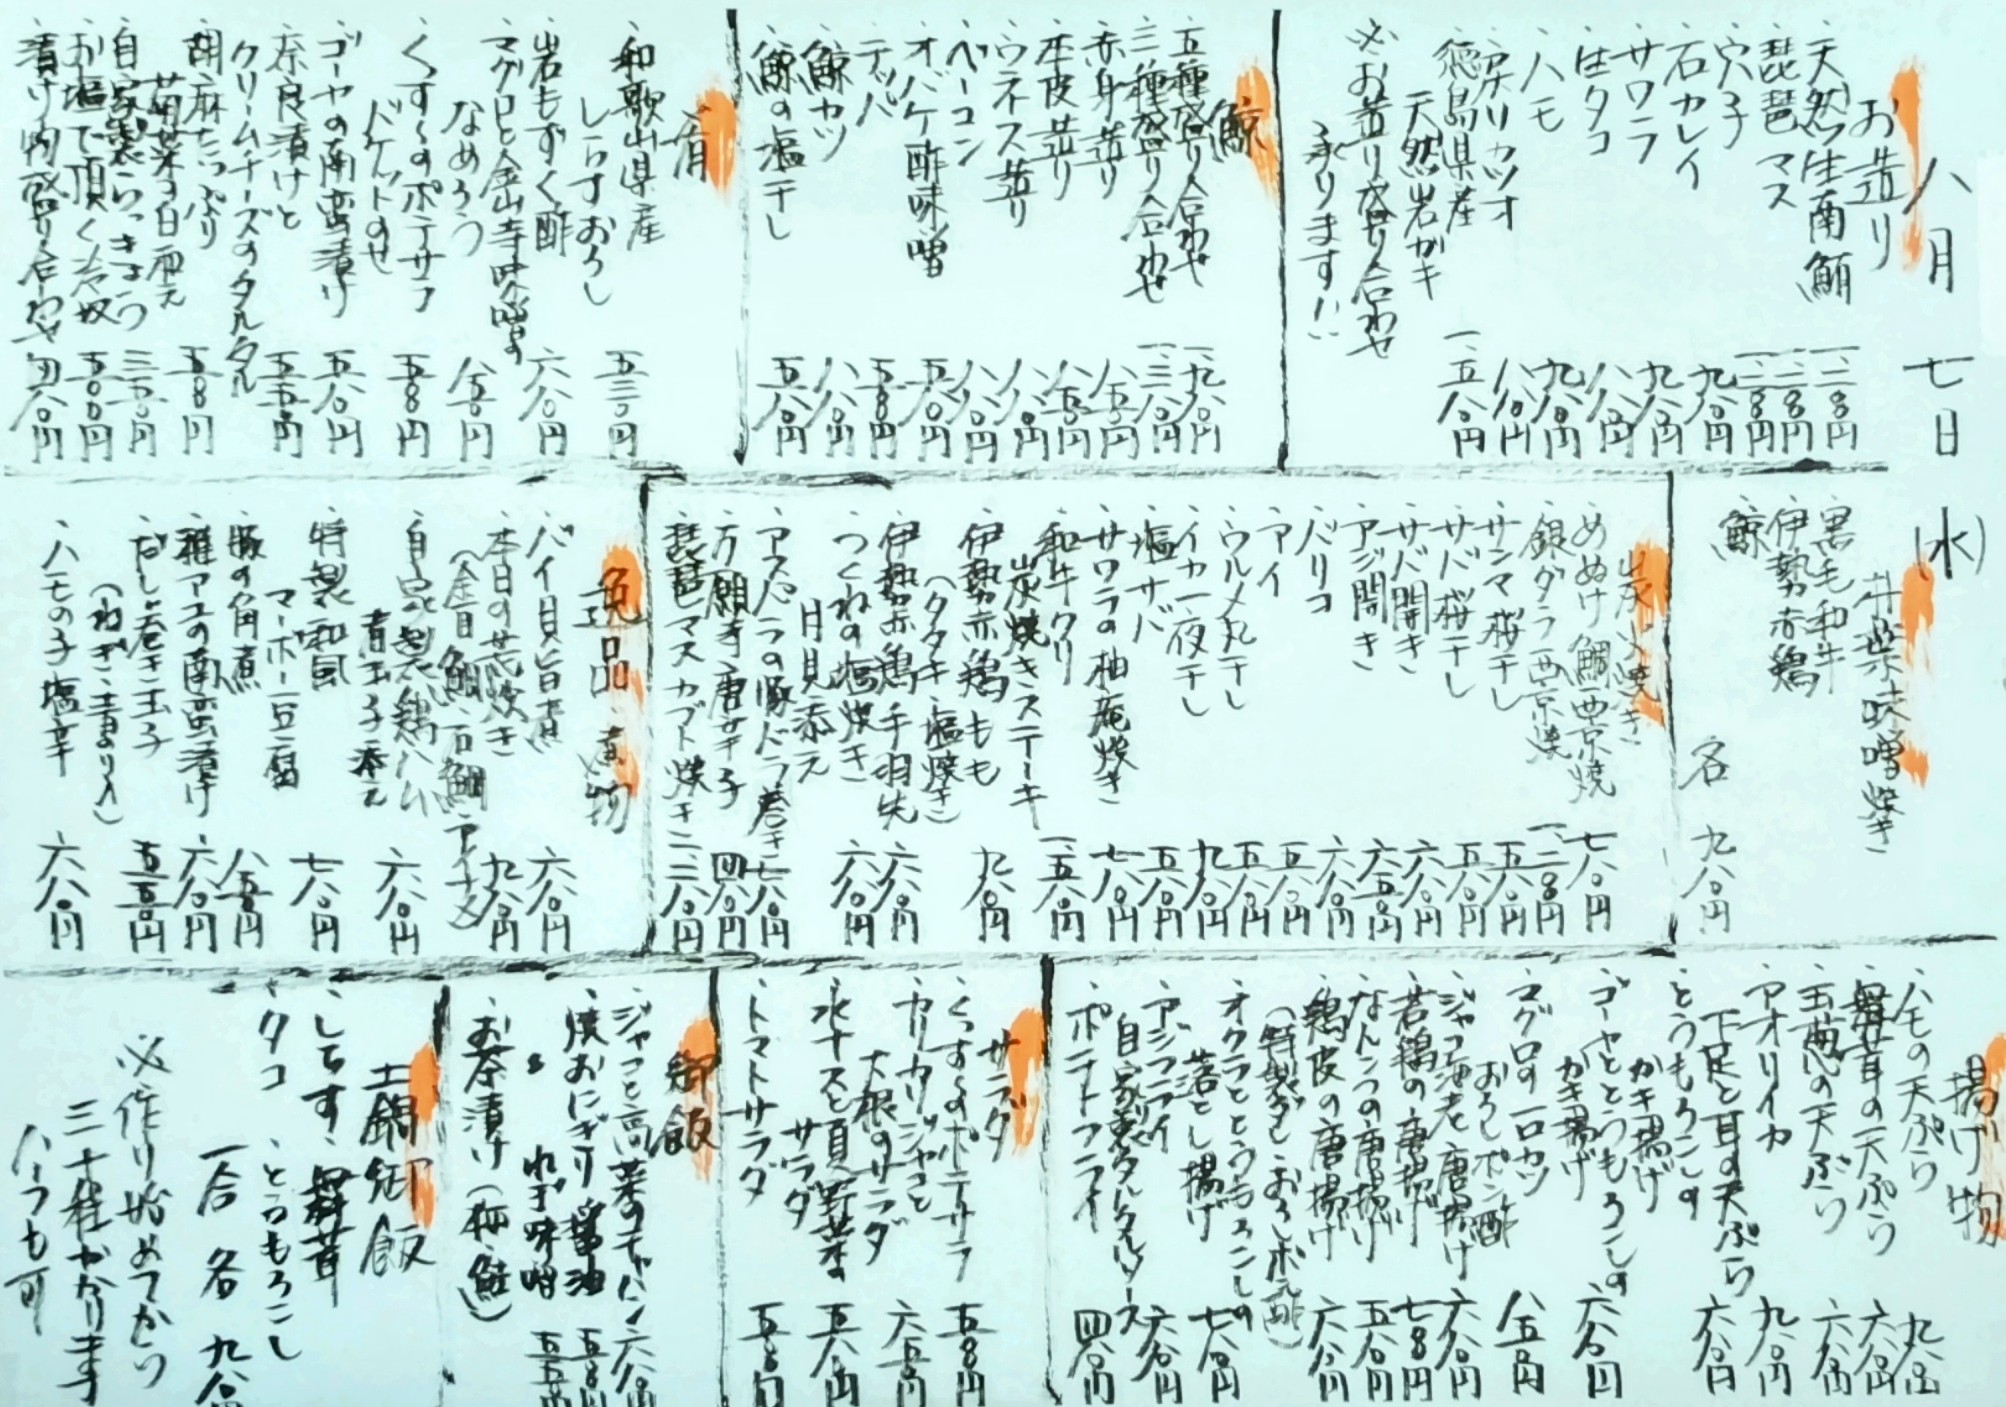 八月七日(水)
お造り
・天然生南鮪 一、二八〇円
・琵琶マス 一、二八〇円
・穴子 一、二八〇円
・石カレイ 九八〇円
・サワラ 九八〇円
・生タコ 八八〇円
・ハモ 九八〇円
・戻リカツオ 八八〇円
・徳島県産
天然岩ガキ 一、五八〇円
※お造り盛り合わせ
承ります!!
鯨
・五種盛り合わせ 一、九八〇円
・三種盛り合わせ 一、三八〇円
・赤身造り 八五〇円
・本皮造り 八五〇円
・ウネス造り 八八〇円
・ベーコン 八八〇円
・オバケ酢味噌 五八〇円
・テッパ 五八〇円
・鯨カツ 八八〇円
・鯨の塩干し 五八〇円
肴
・和歌山県産
しらすおろし 五三〇円
・岩もずく酢 六八〇円
・マグロと金山寺味噌の
なめろう 八五〇円
・くずしのポテサラ
バケットのせ 五八〇円
・ゴーヤの南蛮漬け 五八〇円
・奈良漬けと
クリームチーズのタルタル 五五〇円
・胡麻たっぷり
菊菜の白和え 五八〇円
・自家製らっきょう 三五〇円
・お塩で頂く冷奴 五〇〇円
・漬け物盛り合わせ 四八〇円
朴葉味噌焼き
・黒毛和牛
・伊勢赤鶏
・鯨
各 九八〇円
炭火焼き
・めぬけ鯛西京焼 七八〇円
・銀ダラ西京焼 一、二八〇円
・サンマ桜干し 五八〇円
・サバ桜干し 五八〇円
・サバ開き 六八〇円
・アジ開き 六五〇円
・バリコ 六八〇円
・アイ 五八〇円
・ウルメ丸干し 五五〇円
・イカ一夜干し 九八〇円
・塩サバ 五八〇円
・サワラの柚庵焼き 七八〇円
・和牛クリ
炭焼きステーキ 一、五八〇円
・伊勢赤鶏もも
(タタキ・塩焼き) 九八〇円
・伊勢赤鶏手羽先 六八〇円
・つくねの塩焼き
月見添え 六八〇円
・アスパラの豚バラ巻き 七八〇円
・万願寺唐辛子 四八〇円
・琵琶マスカブト焼き 二、二八〇円
逸品・煮物
・バイ貝旨煮 六八〇円
・本日の荒炊き
(金目鯛・石鯛・アイナメ) 九八〇円
・自家製鶏ハム
煮玉子添え 六八〇円
・特製和風
マーボー豆腐 七八〇円
・豚の角煮 八五〇円
・稚アユの南蛮漬け 六八〇円
・だし巻き玉子
(ねぎ・青のり入) 五五〇円
・ハモの子塩辛 六八〇円
揚げ物
・ハモの天ぷら 九八〇円
・舞茸の天ぷら 六八〇円
・玉葱の天ぷら 六八〇円
・アオリイカ
下足と耳の天ぷら 九八〇円
・とうもろこしの
かき揚げ 六八〇円
・ゴーヤととうもろこしの
かき揚げ 六八〇円
・マグロの一口カツ
おろしポン酢 八五〇円
・ジャコ海老唐揚げ 六八〇円
・若鶏の唐揚げ 七八〇円
・なんこつの唐揚げ 五八〇円
・鶏皮の唐揚げ
(特製ダレ・おろしポン酢) 六八〇円
・オクラととうもろこしの
落とし揚げ 七八〇円
・アジフライ
自家製タルタルソース 六八〇円
・ポテトフライ 四八〇円
サラダ
・くずしのポテサラ 五八〇円
・カリカリジャコと
大根のサラダ 六五〇円
・水ナスと夏野菜の
サラダ 五八〇円
・トマトサラダ 五八〇円
御飯
・ジャコと高菜のチャーハン 六八〇円
・焼おにぎり 醤油 五八〇円
ねぎ味噌
・お茶漬け(梅・鮭) 五五〇円
土鍋御飯
・しらす・舞茸
・タコ・とうもろこし
一合 各 九八〇
※作り始めてから
三十分程かかります
ハーフも可